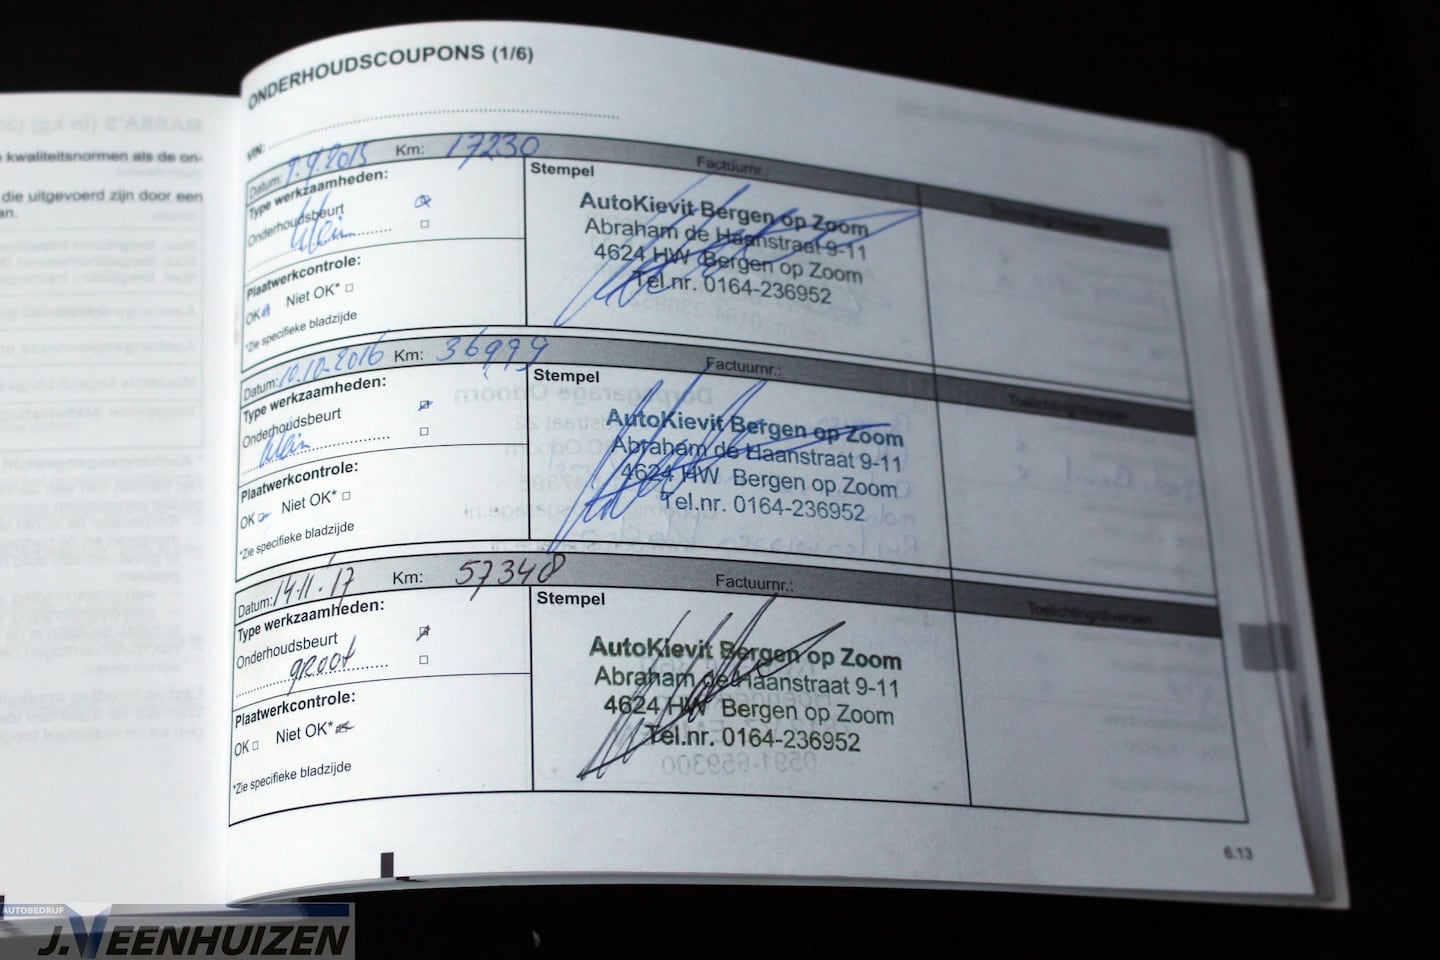 MASSA'S (in kg)
kwaliteitsnormen als de on-
die uitgevoerd zijn door een
an.
ONDERHOUDSCOUPONS (1/6)
VIN:
Datum: 9.9.2015 Km: 17230 Factuurnr.:
Type werkzaamheden:
Onderhoudsbeurt
klein
Plaatwerkcontrole:
OK Niet OK*
*Zie specifieke bladzijde
Stempel
AutoKievit Bergen op Zoom
Abraham de Haanstraat 9-11
4624 HW Bergen op Zoom
Tel.nr. 0164-236952
Toelichting/diversen
Datum: 10.10.2016 Km: 36999 Factuurnr.:
Type werkzaamheden:
Onderhoudsbeurt
klein
Plaatwerkcontrole:
OK Niet OK*
*Zie specifieke bladzijde
Stempel
AutoKievit Bergen op Zoom
Abraham de Haanstraat 9-11
4624 HW Bergen op Zoom
Tel.nr. 0164-236952
Toelichting/diversen
Datum: 14.11.17 Km: 57340 Factuurnr.:
Type werkzaamheden:
Onderhoudsbeurt
groot
Plaatwerkcontrole:
OK Niet OK*
*Zie specifieke bladzijde
Stempel
AutoKievit Bergen op Zoom
Abraham de Haanstraat 9-11
4624 HW Bergen op Zoom
Tel.nr. 0164-236952
Toelichting/diversen
6.13
AUTOBEDRIJF
J.VEENHUIZEN